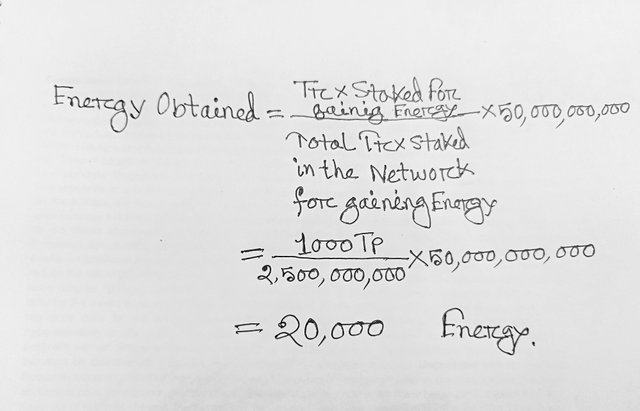 Energy Obtained = Trx Staked for gainig Energy × 50,000,000,000
Total Trx Staked
in the Network
for gaining Energy
= 1000 TP / 2,500,000,000 × 50,000,000,000
= 20,000 Energy.